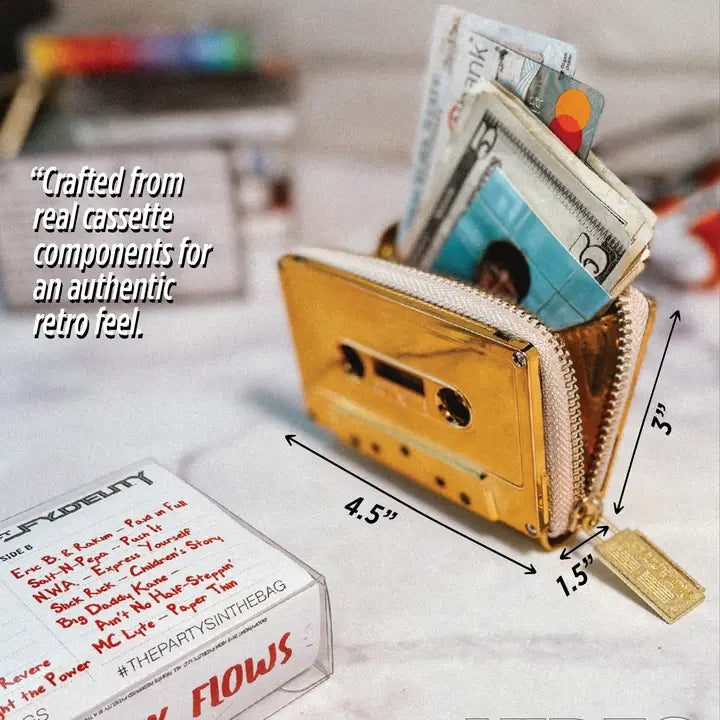 “Crafted from
real cassette
components for
an authentic
retro feel.
4.5”
3”
1.5”
5
HYFYDELITY
SIDE B
Eric B. & Rakim - Paid in Full
Salt-N-Pepa - Push It
N.W.A. - Express Yourself
Slick Rick - Children's Story
Big Daddy Kane -
Ain't No Half Steppin'
MC Lyte - Paper Thin
Revere
the Power
#THEPARTYSINTHEBAG
FLOWS